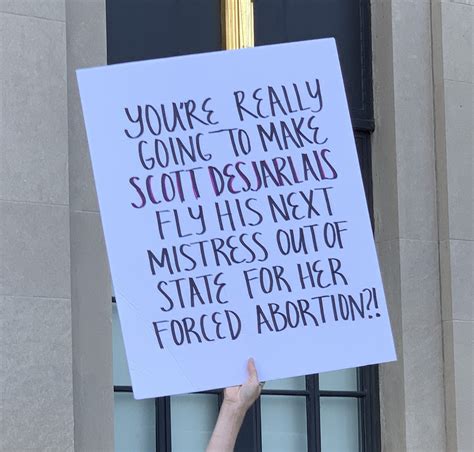 YOU'RE REALLY
GOING TO MAKE
SCOTT DESJARLAIS
FLY HIS NEXT
MISTRESS OUT OF
STATE FOR HER
FORCED ABORTION?!